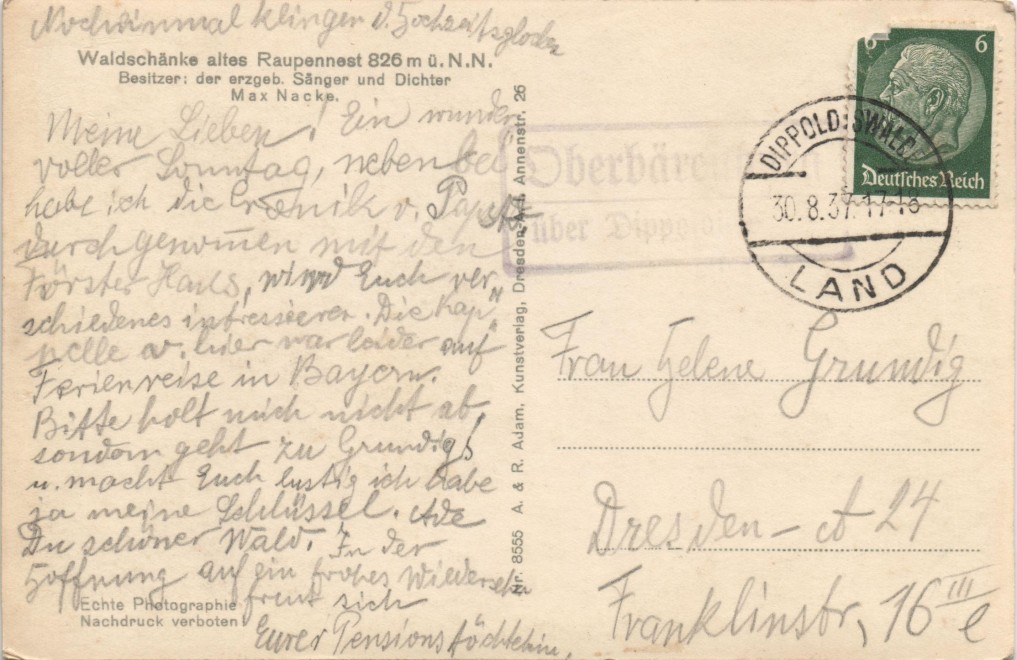 Nocheinmal klingen d. Hochzeitsglocken
Waldschänke altes Raupennest 826 m ü. N.N.
Besitzer: der erzgeb. Sänger und Dichter
Max Nacke.
Meine Lieben! Ein wunder
voller Sonntag, nebenbei
habe ich die Cronik v. Papst
durchgenommen mit den
Förster Hans, wird Euch ver
schiedenes intresseeren. Die Kap
pelle v. hier war leider auf
Ferienreise in Bayern.
Bitte holt mich nicht ab,
sondern geht zu Grundigs
u. macht Euch lustig ich habe
ja meine Schlüssel. Ade
Du schöner Wald! In der
Hoffnung auf ein frohes Wiedersehn
freut sich
Eurer Pensionstöchtchen,
Echte Photographie
Nachdruck verboten
Nr. 8555 A. & R. Adam, Kunstverlag, Dresden-A. 1, Annenstr. 26
Oberbären
über Dippoldi
6 6
Deutsches Reich
DIPPOLDISWALD
30.8.37.17-18
LAND
Frau Helene Grundig
Dresden-A 24
Franklinstr, 16 III e